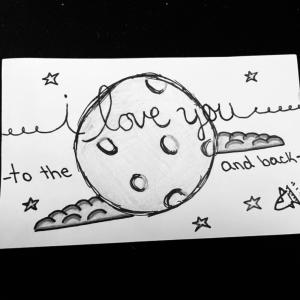 i love you
-to the and back-